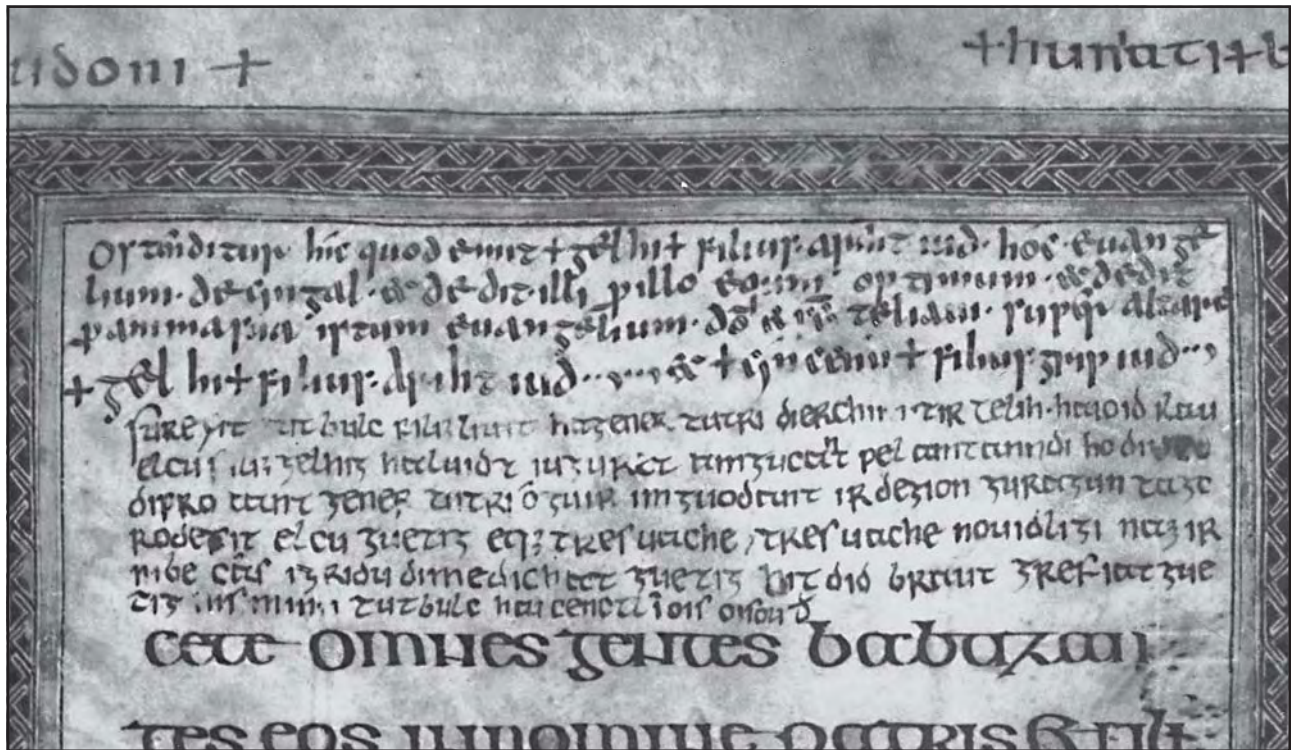 idoni + + hunatit + b
ostenditur hic quod emit + gelhi + filius · arihtiud · hoc · euange
lium · de cingal · et dedit · illi pro illo equm optimum · et dedit
pro anima sua istum euangelium · dō et sci teliaui · super altare
+ gelhi + filius · arihtiud ··,··· et + cincenn + filius gripiud ··,
surexit tutbulc filius liuit hagener tutri dierchir · tir telih · haioid ilau
elcu filius gelhig haluidt iuguret amgucant pel amtanndi ho diued
diprotant gener tutri o guir imguodant ir degion guragun tagc
rodesit elcu guetig equs tres uache, tres uache nouidligi nam ir
nibe cas igridu dimedichat guetig hit did braut grefiat gue
tig nis minn tutbulc hai cenetl in ois oisou
cete omnes gentes babazan
tes eos in nomine patris & fili